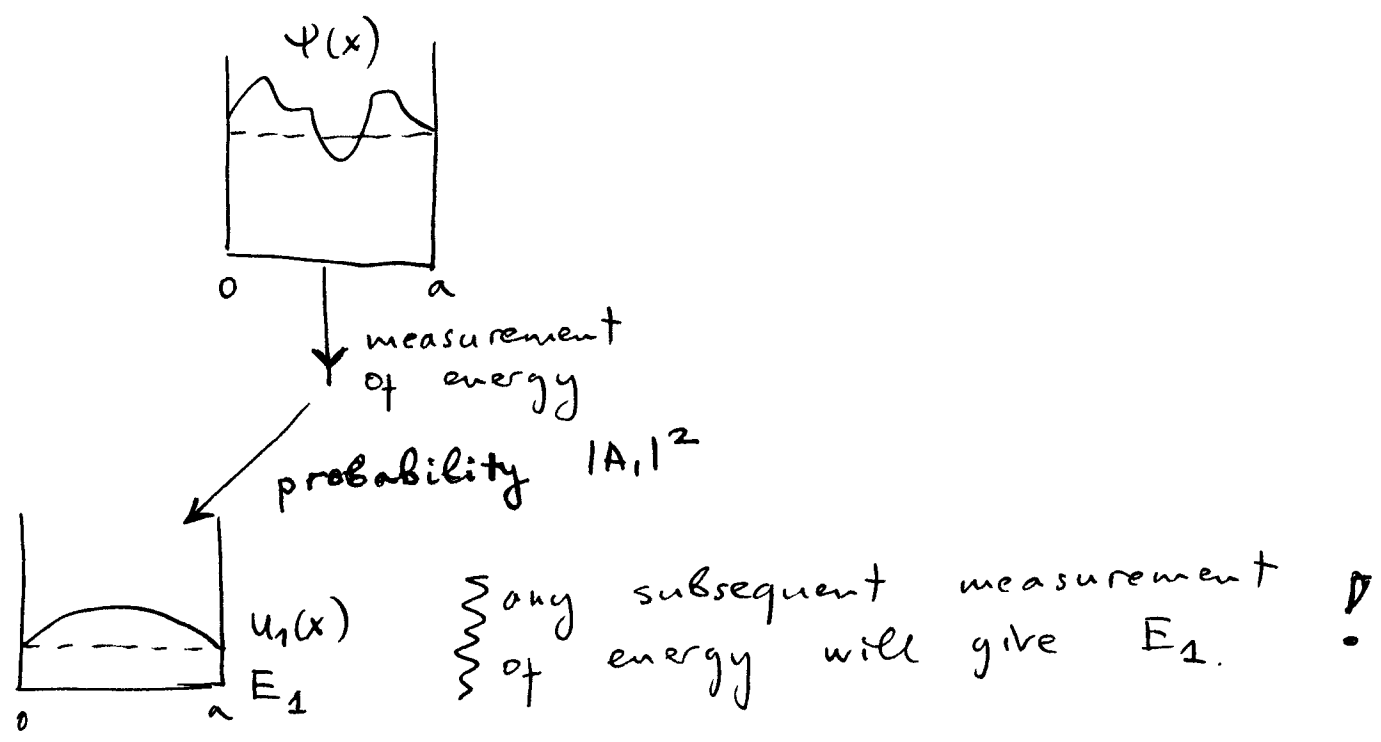 Ψ(x)
0 a
measurement
of energy
probability |A₁|²
u₁(x)
E₁
0 a
any subsequent measurement
of energy will give E₁. !